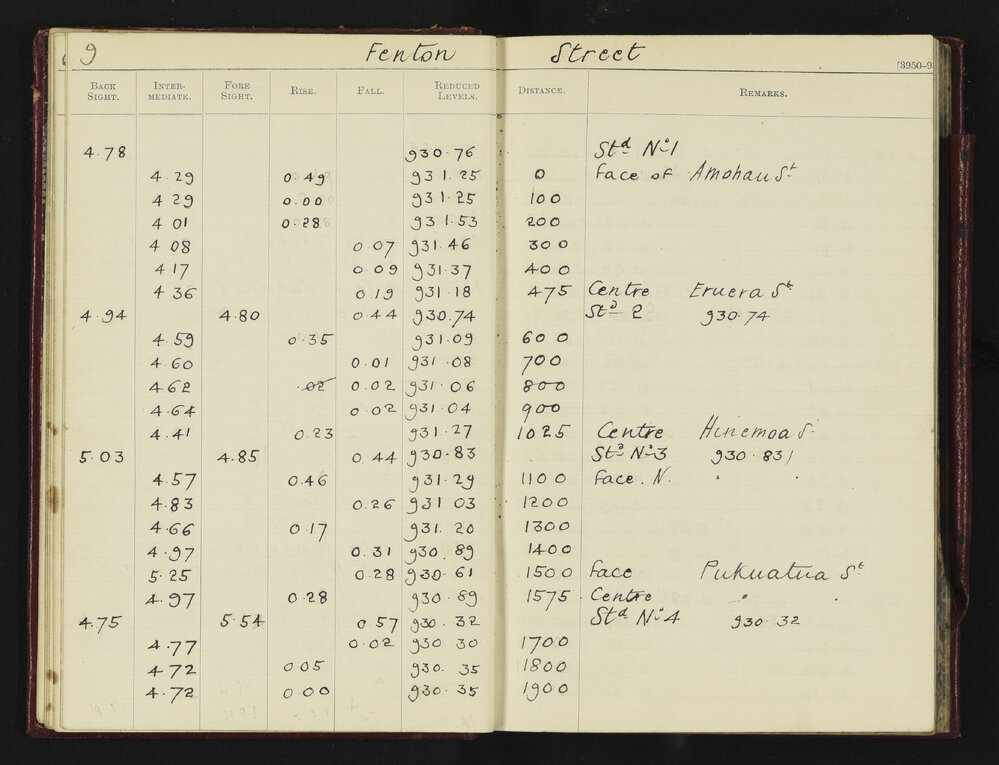 9 Fenton Street [3950-9
BACK SIGHT. INTER-MEDIATE. FORE SIGHT. RISE. FALL. REDUCED LEVELS. DISTANCE. REMARKS.
4.78 930.76 Std No 1
4.29 0.49 931.25 0 Face of Amohau St
4 29 0.00 931.25 100
4 01 0.28 931.53 200
4 08 0.07 931.46 300
4 17 0.09 931.37 400
4 36 0.19 931.18 475 Centre Eruera St
4.94 4.80 0.44 930.74 Std 2 930.74
4.59 0.35 931.09 600
4.60 0.01 931.08 700
4.62 .02 0.02 931.06 800
4.64 0.02 931.04 900
4.41 0.23 931.27 1025 Centre Hinemoa S
5.03 4.85 0.44 930.83 Std No 3 930.831
4.57 0.46 931.29 1100 Face. N. "
4.83 0.26 931 03 1200
4.66 0.17 931.20 1300
4.97 0.31 930.89 1400
5.25 0.28 930.61 1500 Face Pukuatua St
4.97 0.28 930.89 1575 Centre " "
4.75 5.54 0.57 930.32 Std No 4 930.32
4.77 0.02 930 30 1700
4.72 0.05 930.35 1800
4.72 0.00 930.35 1900